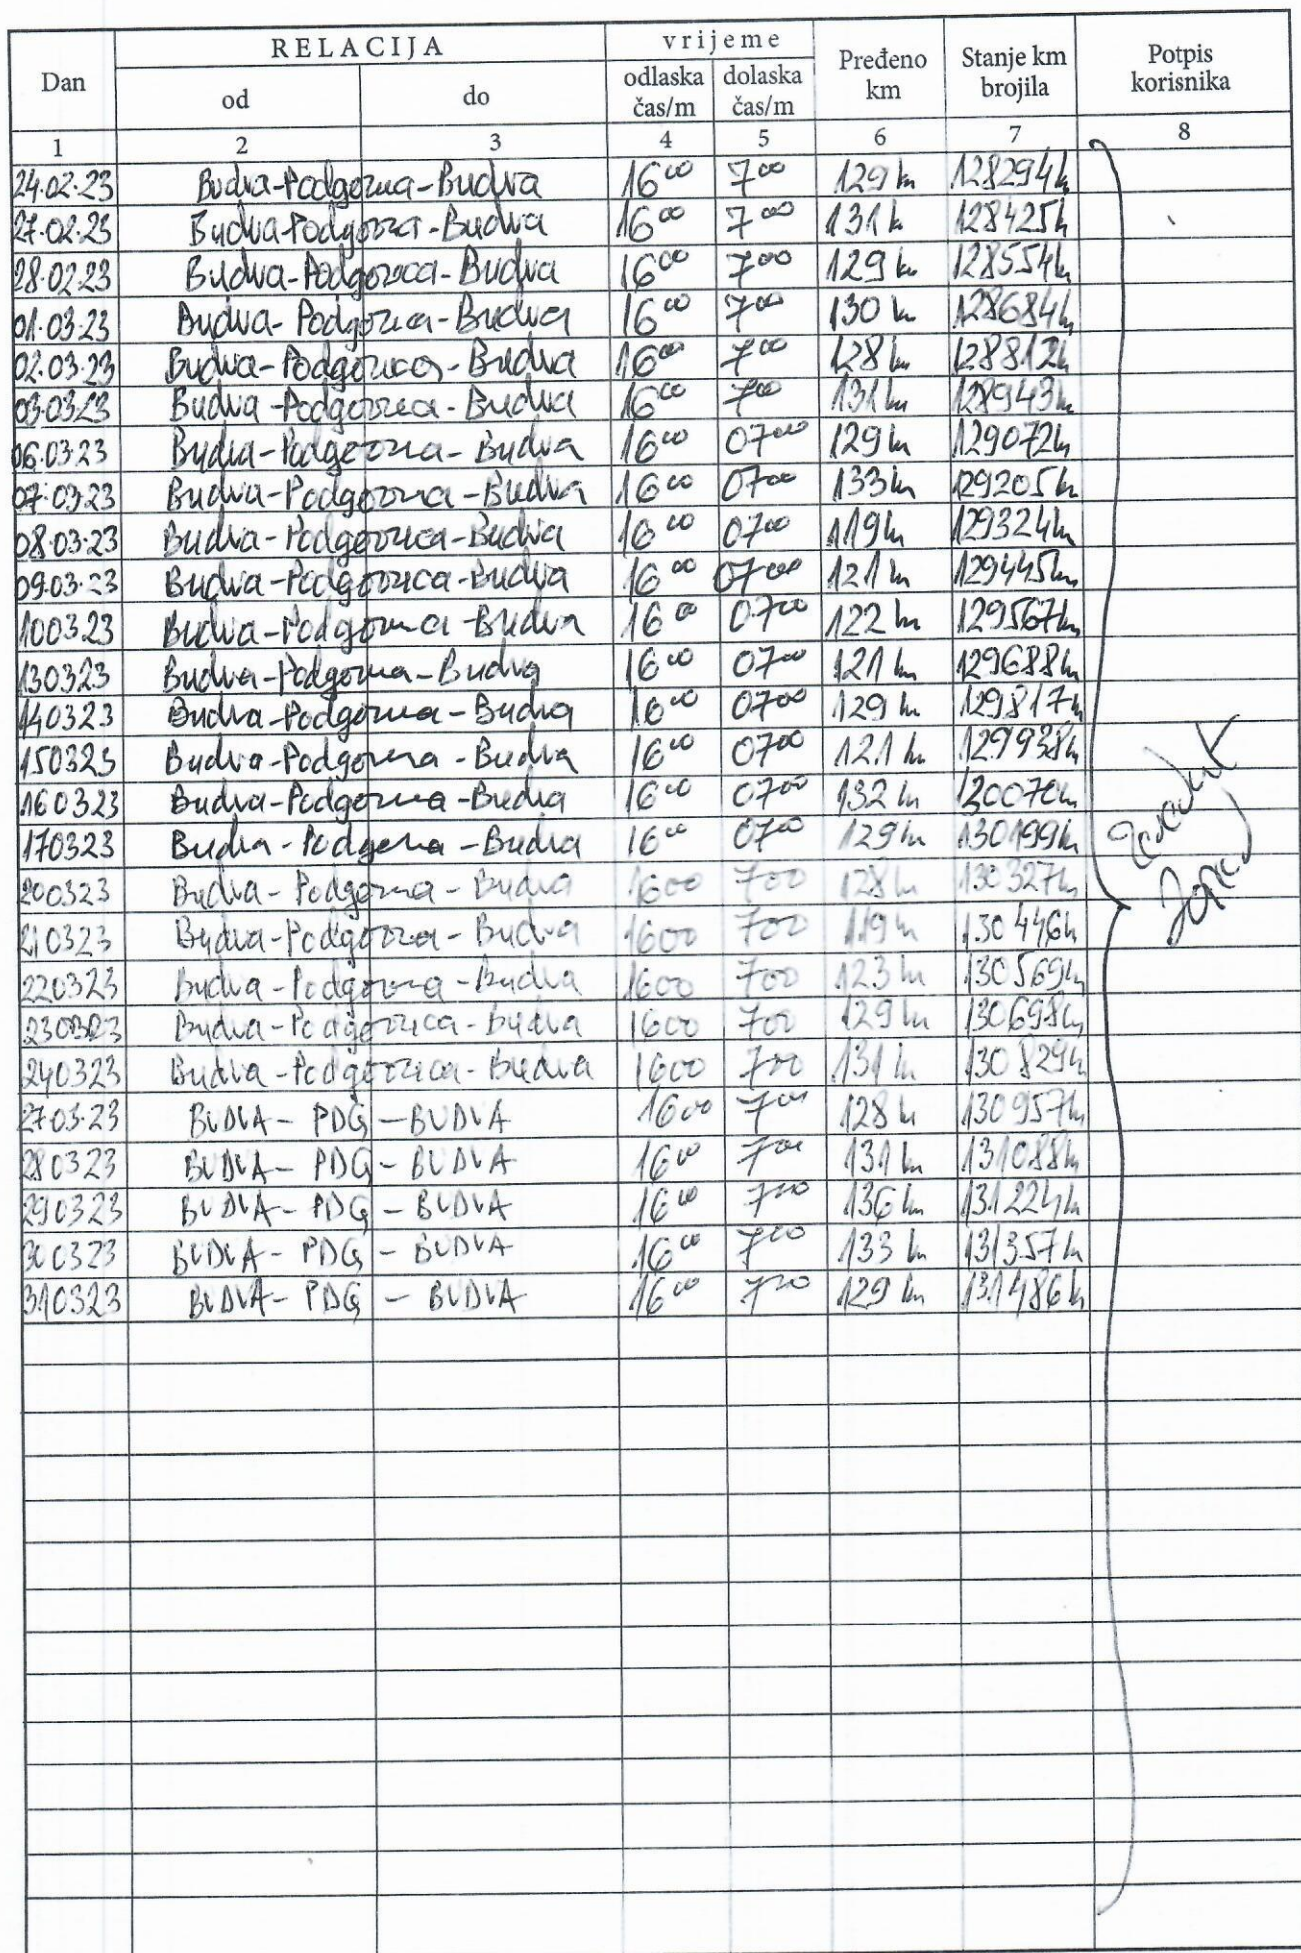 RELACIJA vrijeme
Dan od do odlaska čas/m dolaska čas/m Pređeno km Stanje km brojila Potpis korisnika
1 2 3 4 5 6 7 8
24.02.23 Budva-Podgorica-Budva 16 00 7 00 129 km 128294 km
27.02.23 Budva-Podgorica-Budva 16 00 7 00 131 km 128425 km
28.02.23 Budva-Podgorica-Budva 16 00 7 00 129 km 128554 km
01.03.23 Budva-Podgorica-Budva 16 00 7 00 130 km 128684 km
02.03.23 Budva-Podgorica-Budva 16 00 7 00 128 km 128812 km
03.03.23 Budva-Podgorica-Budva 16 00 7 00 131 km 128943 km
06.03.23 Budva-Podgorica-Budva 16 00 07 00 129 km 129072 km
07.03.23 Budva-Podgorica-Budva 16 00 07 00 133 km 129205 km
08.03.23 Budva-Podgorica-Budva 16 00 07 00 119 km 129324 km
09.03.23 Budva-Podgorica-Budva 16 00 07 00 121 km 129445 km
10.03.23 Budva-Podgorica-Budva 16 00 07 00 122 km 129567 km
130323 Budva-Podgorica-Budva 16 00 07 00 121 km 129688 km
140323 Budva-Podgorica-Budva 16 00 07 00 129 km 129817 km
150323 Budva-Podgorica-Budva 16 00 07 00 121 km 129938 km
160323 Budva-Podgorica-Budva 16 00 07 00 132 km 130070 km
170323 Budva-Podgorica-Budva 16 00 07 00 129 km 130199 km
200323 Budva-Podgorica-Budva 1600 700 128 km 130327 km
210323 Budva-Podgorica-Budva 1600 700 119 km 130446 km
220323 Budva-Podgorica-Budva 1600 700 123 km 130569 km
230323 Budva-Podgorica-Budva 1600 700 129 km 130698 km
240323 Budva-Podgorica-Budva 1600 700 131 km 130829 km
270323 BUDVA-PDG-BUDVA 16 00 7 00 128 km 130957 km
280323 BUDVA-PDG-BUDVA 16 00 7 00 131 km 131088 km
290323 BUDVA-PDG-BUDVA 16 00 7 00 136 km 131224 km
300323 BUDVA-PDG-BUDVA 16 00 7 00 133 km 131357 km
310323 BUDVA-PDG-BUDVA 16 00 7 00 129 km 131486 km